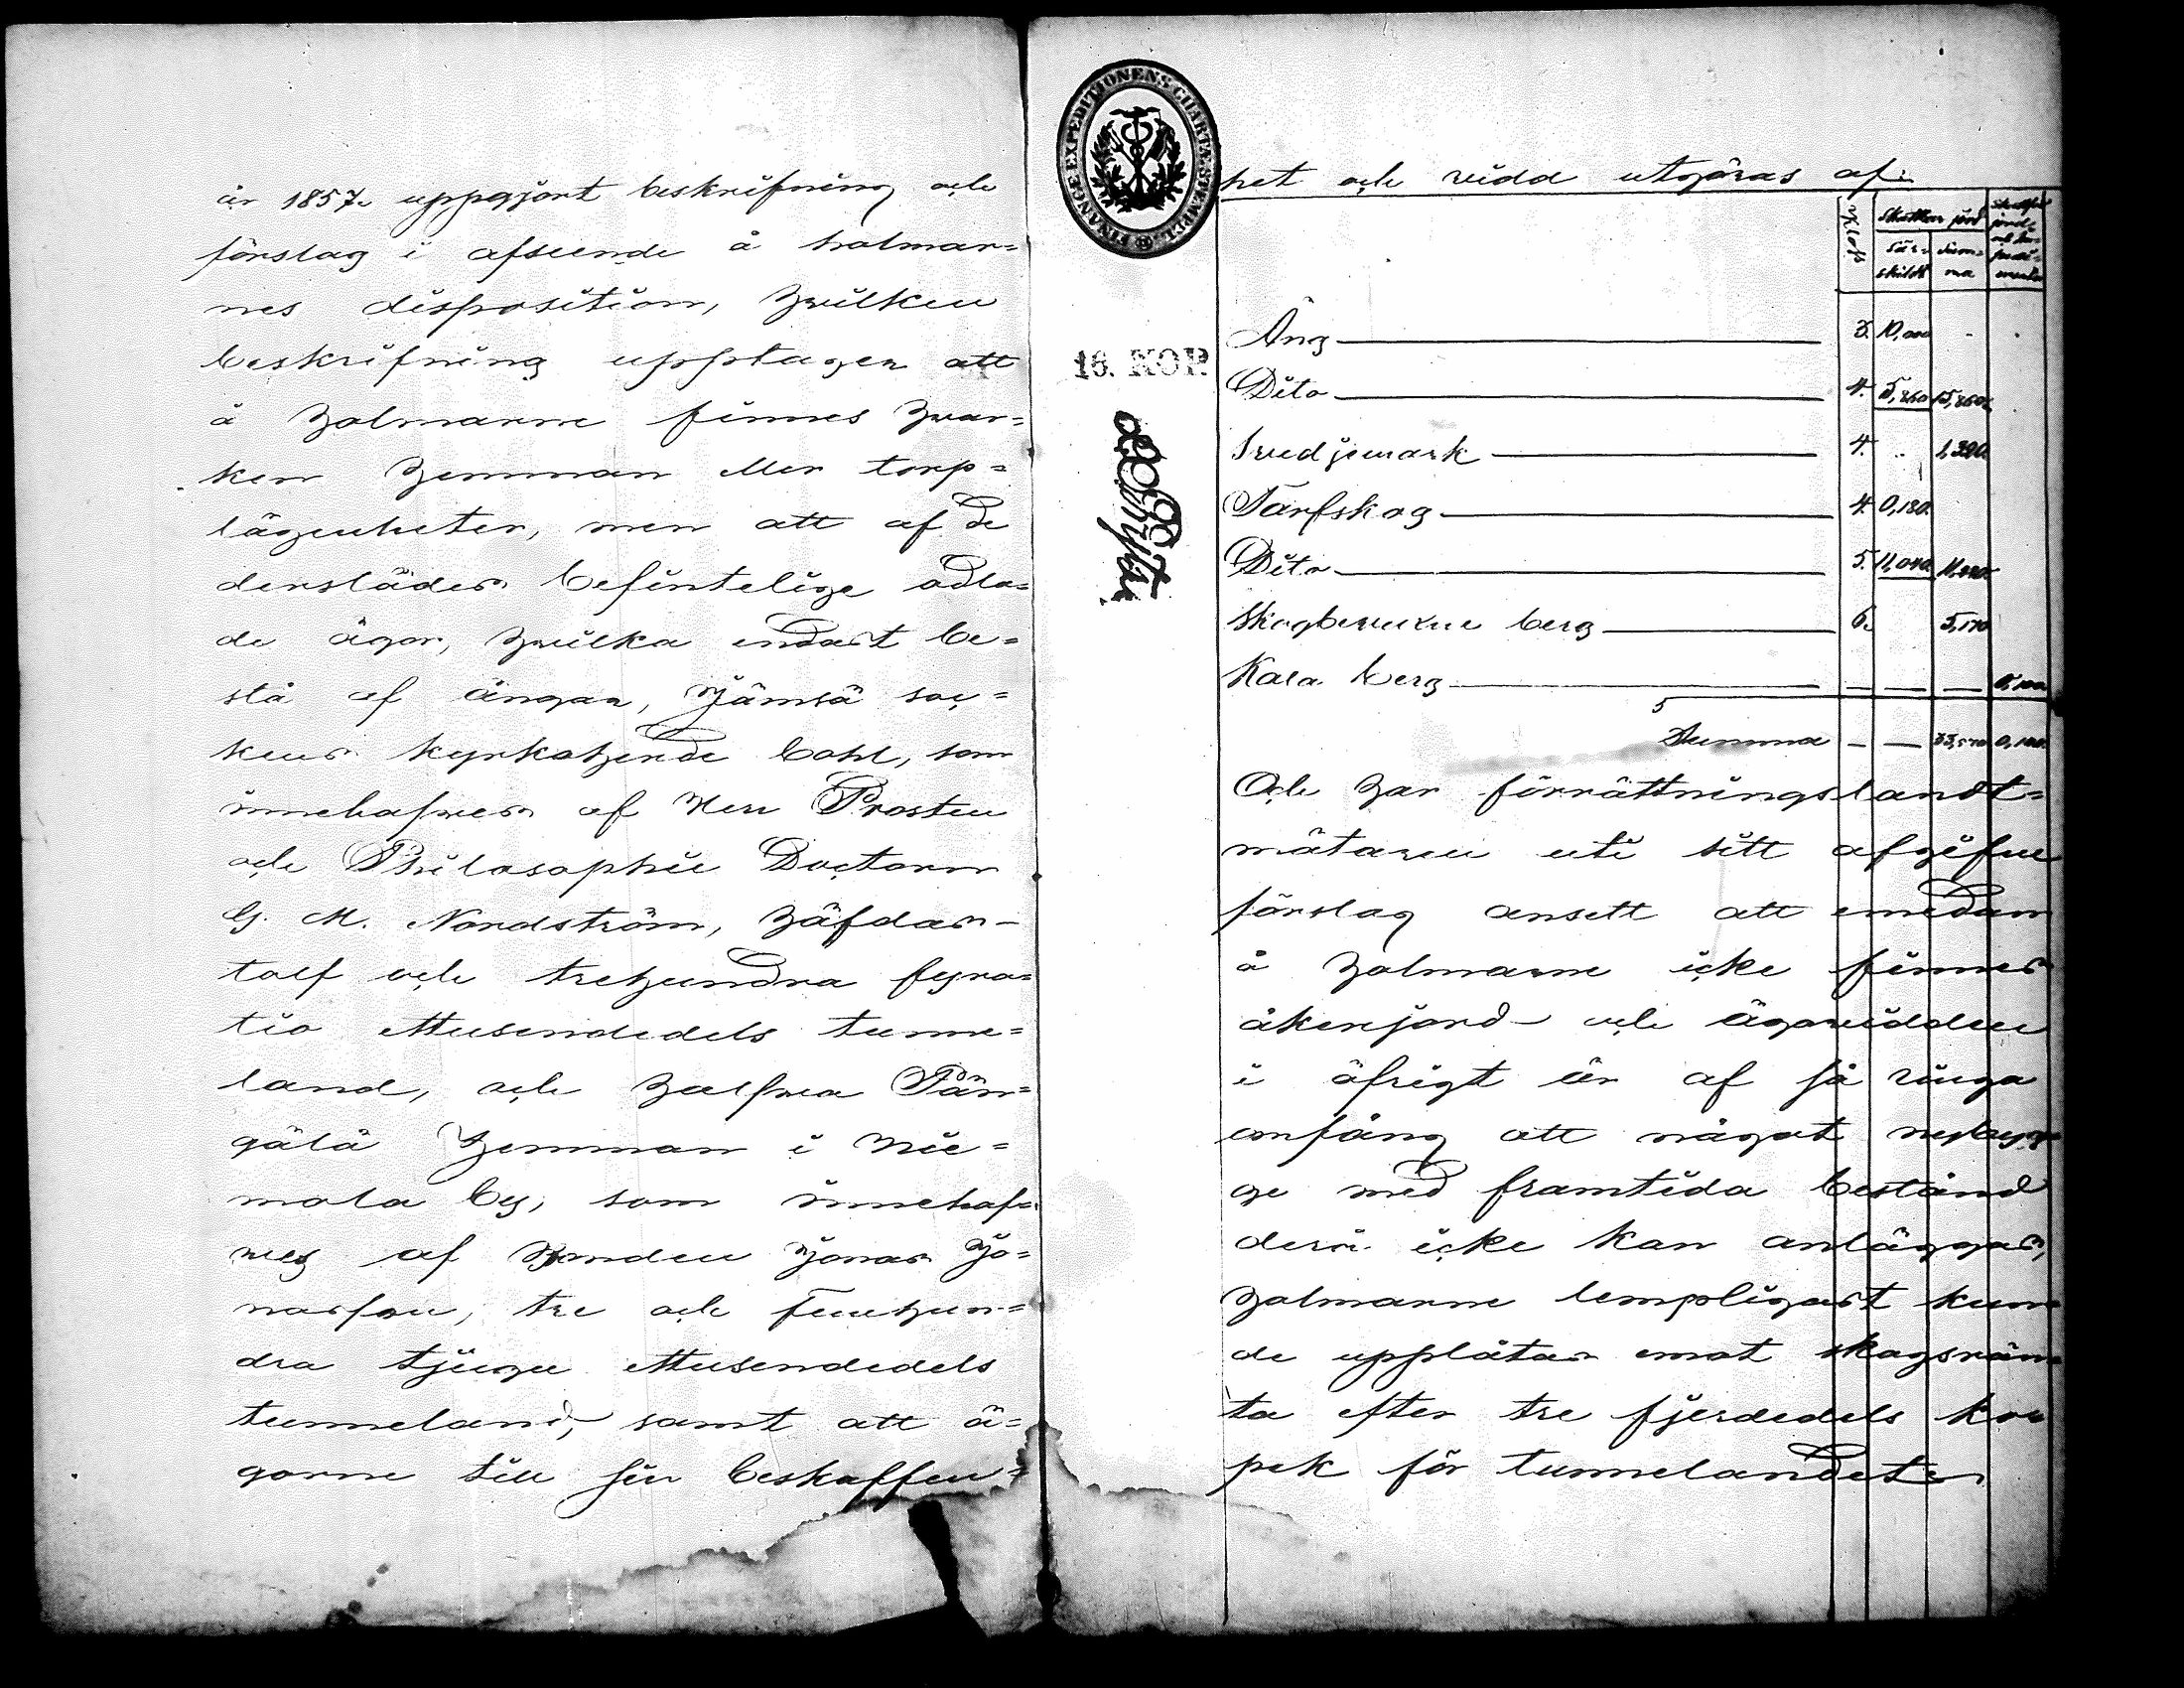 år 1857. uppgjort beskrifning och
förslag i afseende å holmar=
nes disposition, hvilken
beskrifning upptager att
å holmarne finnes hvar=
ken hemman eller torp=
lägenheter, men att af de
derstädes befintelige odla=
de ägor, hvilka endast be=
stå af ängar, Jämsä soc=
kens kyrkoherde bohl, som
innehafves af Herr Prosten
och Philosophie Doctorn
G. M. Nordström, häfdar
tolf och trehundra fyra=
tio ettusendedels tunne=
land, och halfva Pän=
gälä hemman i Nie=
mola by, som innehaf=
ves af bonden Jonas Jo=
nasson, tre och femhun=
dra tjugu ettusendedels
tunneland, samt att ä=
gorne till sin beskaffen=
FINANCE EXPEDITIONENS CHARTÆ STEMPEL
16. KOP.
het och vidd utgöras af:
Skattbar jord
Sär=
skildt
Sum=
ma
Äng 3. 10,000 - .
Dito 4. 5,860 15,860.
Svedjemark 4. .. 1,320.
Tarfskog 4. 0,180.
Dito 5. 11,040. 11,220.
Skogbevuxne berg 6. 5,170
Kala berg — — — 0,100
Summa — — 33,570 0,100.
Och har förrättningslandt=
mätaren uti sitt afgifne
förslag ansett att emedan
å holmarne icke finnes
åkerjord och ägovidden
i öfrigt är af så ringa
omfång att något nybyg=
ge med framtida bestånd
derå icke kan anläggas,
holmarne lempligast kun=
de upplåtas emot skogsrän=
ta efter tre fjerdedels ko=
pek för tunnelandet